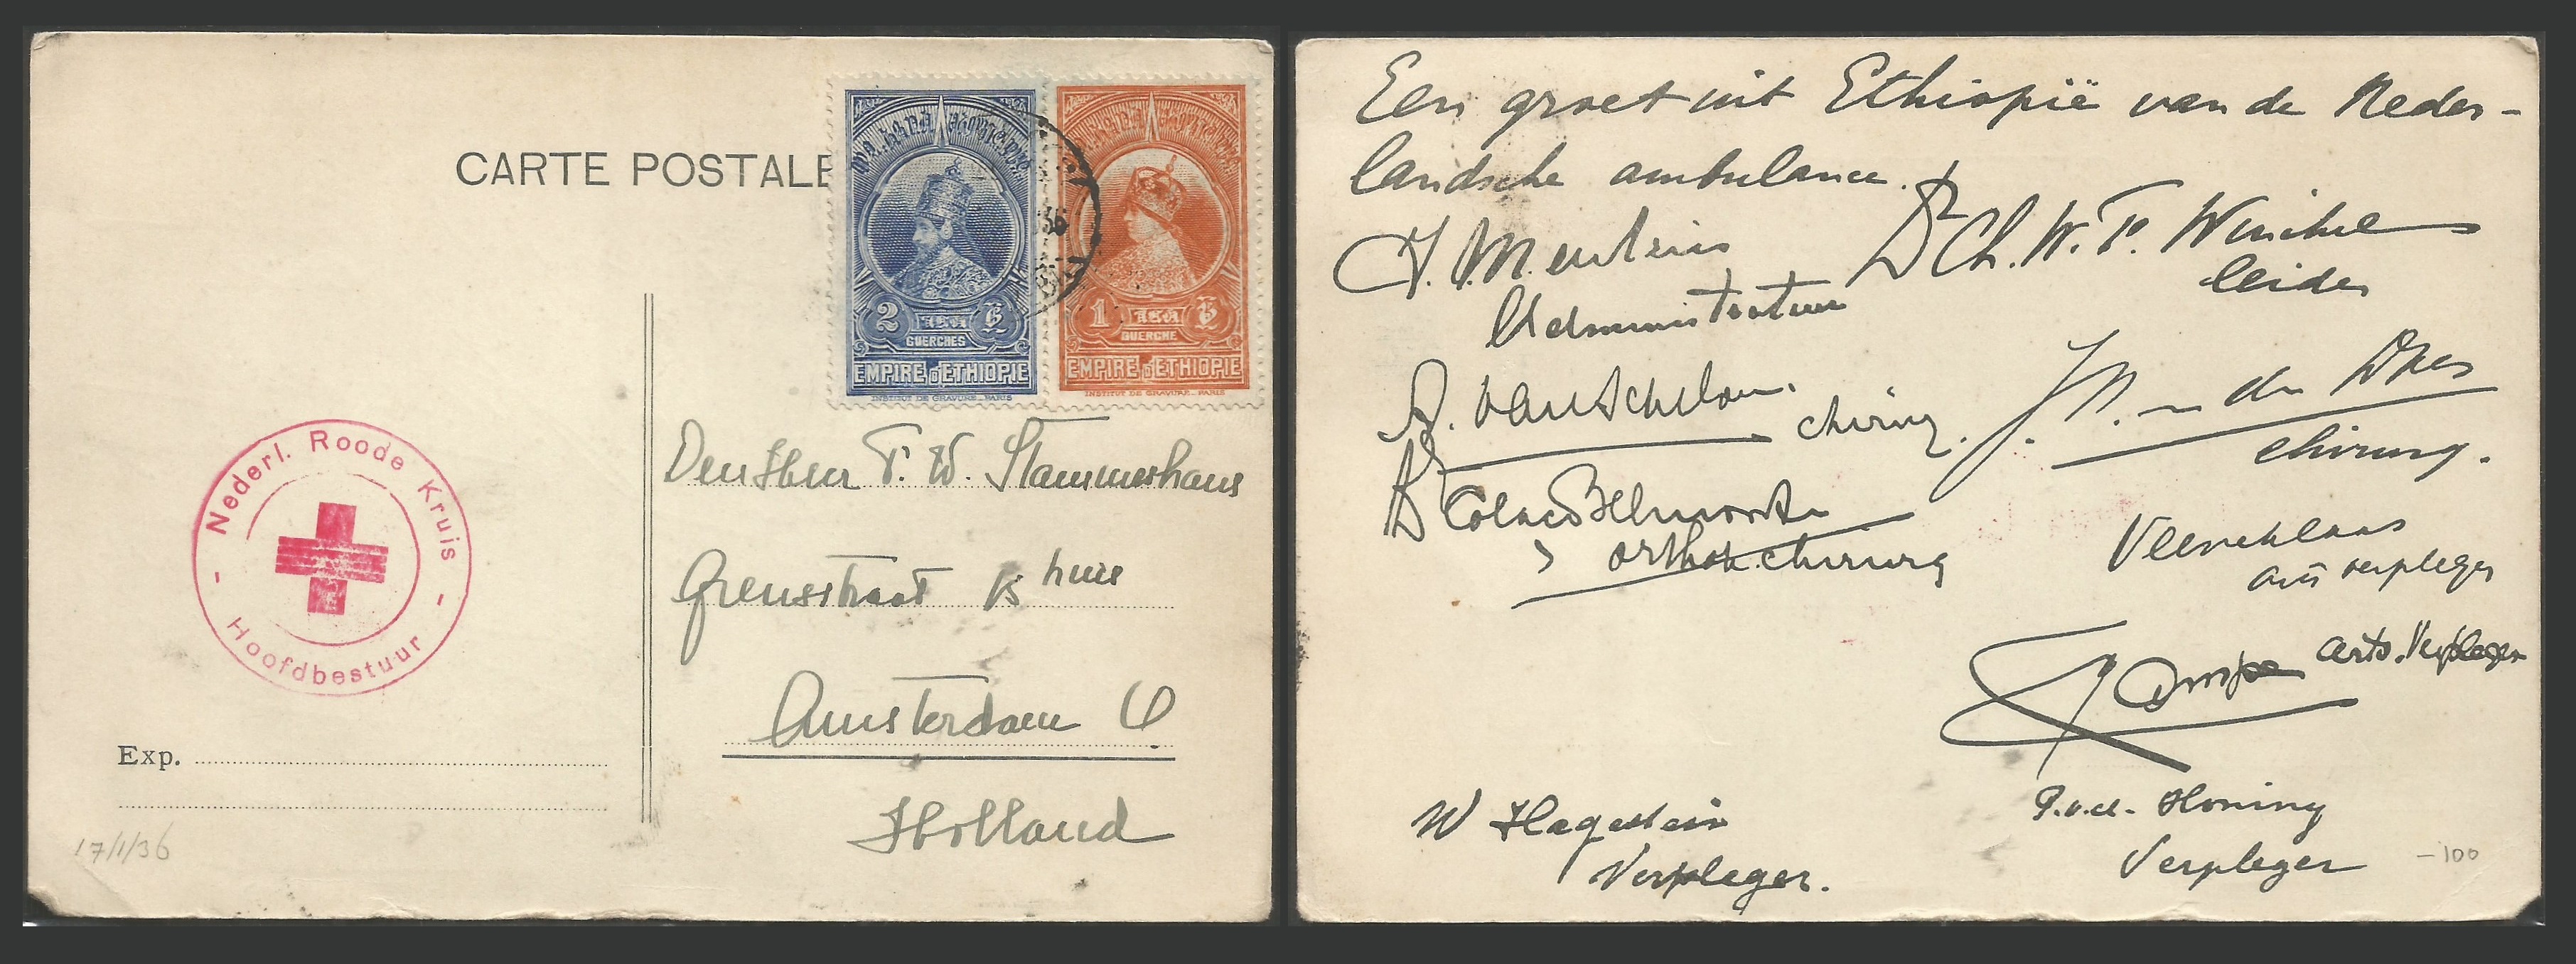 CARTE POSTALE
2 GUERCHES
EMPIRE D'ETHIOPIE
INSTITUT DE GRAVURE _ PARIS
1 GUERCHE
EMPIRE D'ETHIOPIE
INSTITUT DE GRAVURE _ PARIS
36
Nederl. Roode Kruis
- Hoofdbestuur -
Den Heer T. W. Stammeshaus
huis
Amsterdam
Holland
Exp.
17/1/36
Een groet uit Ethiopië van de Neder-
landsche ambulance.
Dr Ch. W. F. Winckel
leider
Administrateur
A. van Schelven chirurg.
chirurg.
Dr Colaco Belmonte
orthop. chirurg
Veeneklaas
arts verpleger
arts. Verpleger
W Hagestein
Verpleger.
P. v. d. Honing
Verpleger
-100